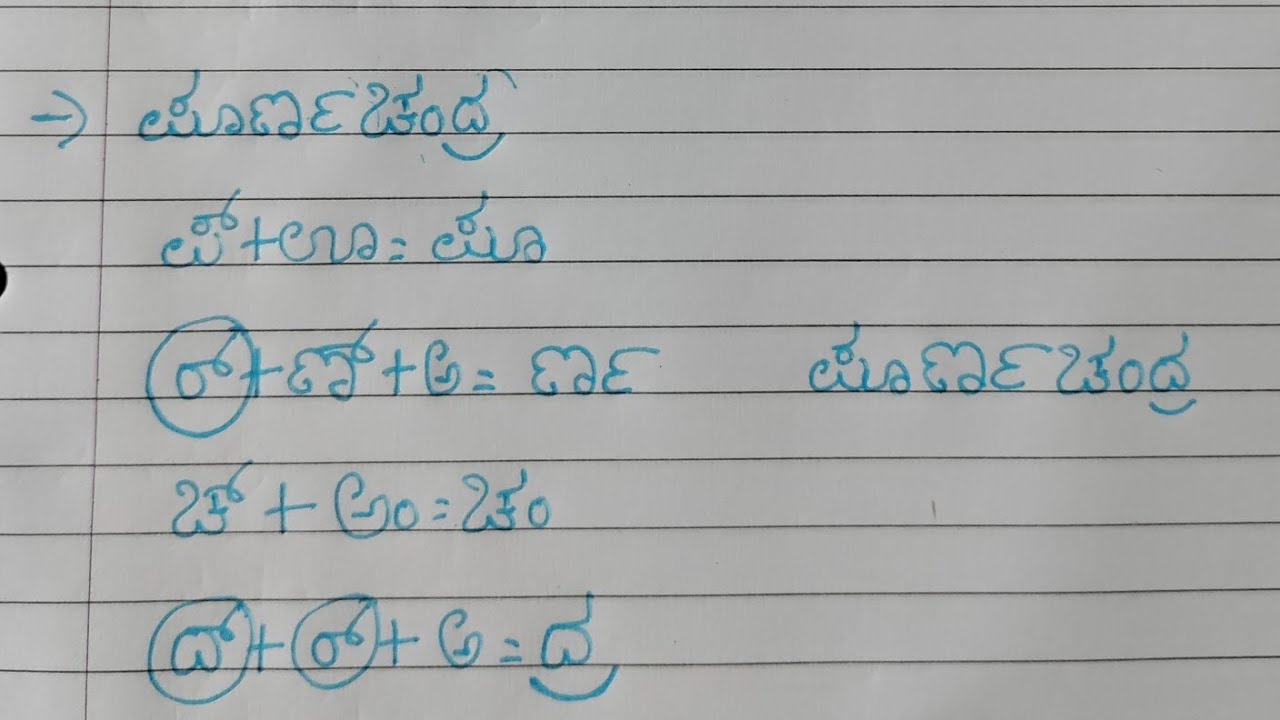 → ಪೂರ್ಣಚಂದ್ರ
ಪ್+ಊ= ಪೂ
ರ್+ಣ್+ಅ= ರ್ಣ ಪೂರ್ಣಚಂದ್ರ
ಚ್ + ಅಂ=ಚಂ
ದ್+ರ್+ ಅ = ದ್ರ